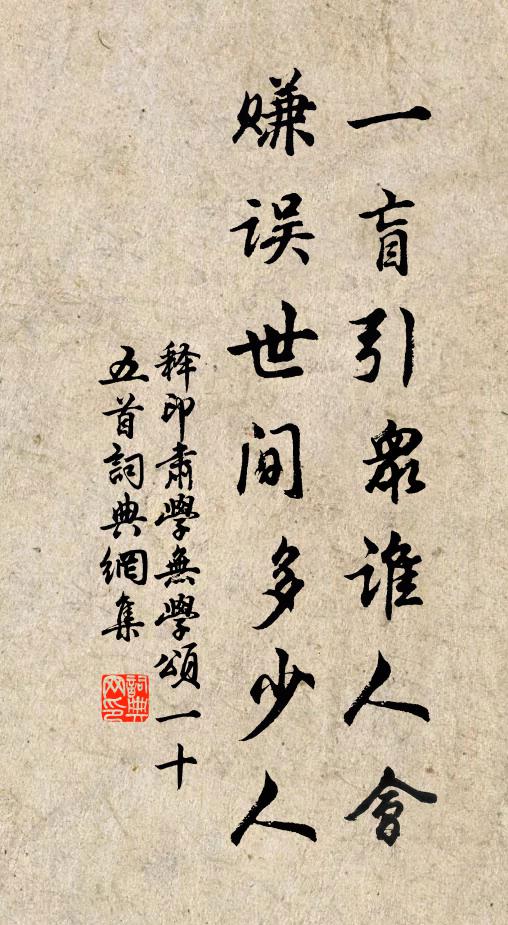 一盲引眾誰人會
赚误世间多少人
释印肃學無學頌一十
五首詞典網集
詞典網印